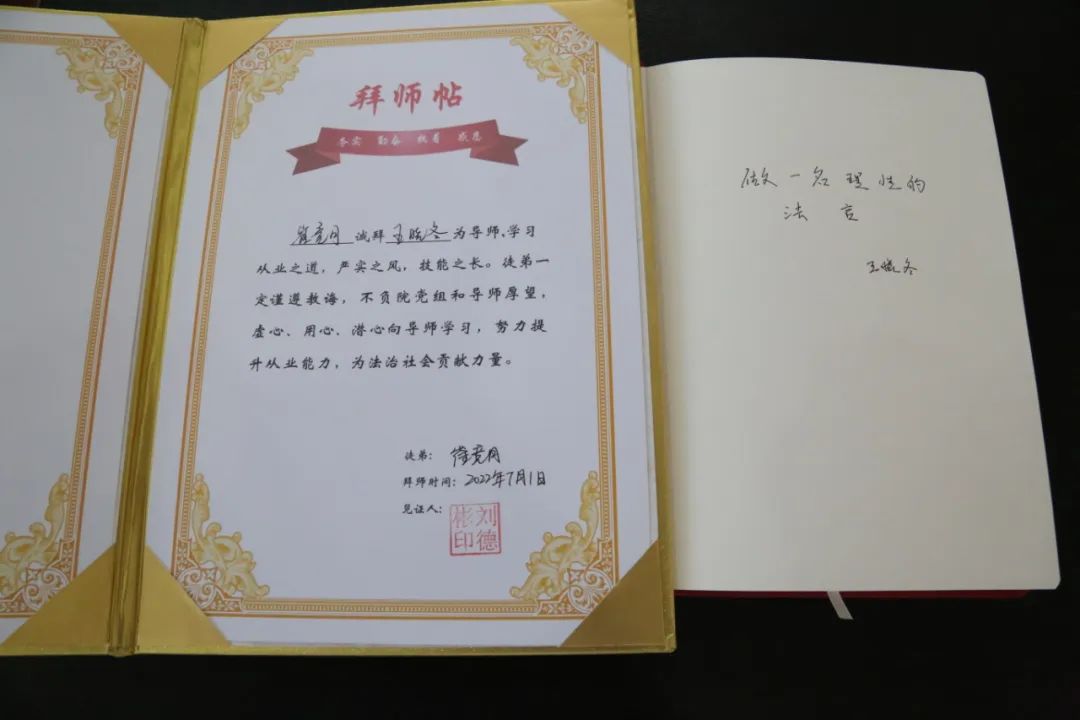 拜师帖
务实 勤奋 执着 感恩
诚拜 为导师,学习
从业之道,严实之风,技能之长。徒弟一
定谨遵教诲,不负院党组和导师厚望,
虚心、用心、潜心向导师学习,努力提
升从业能力,为法治社会贡献力量。
徒弟:
拜师时间:2022年7月1日
见证人:
刘德彬印
做一名理性的
法官